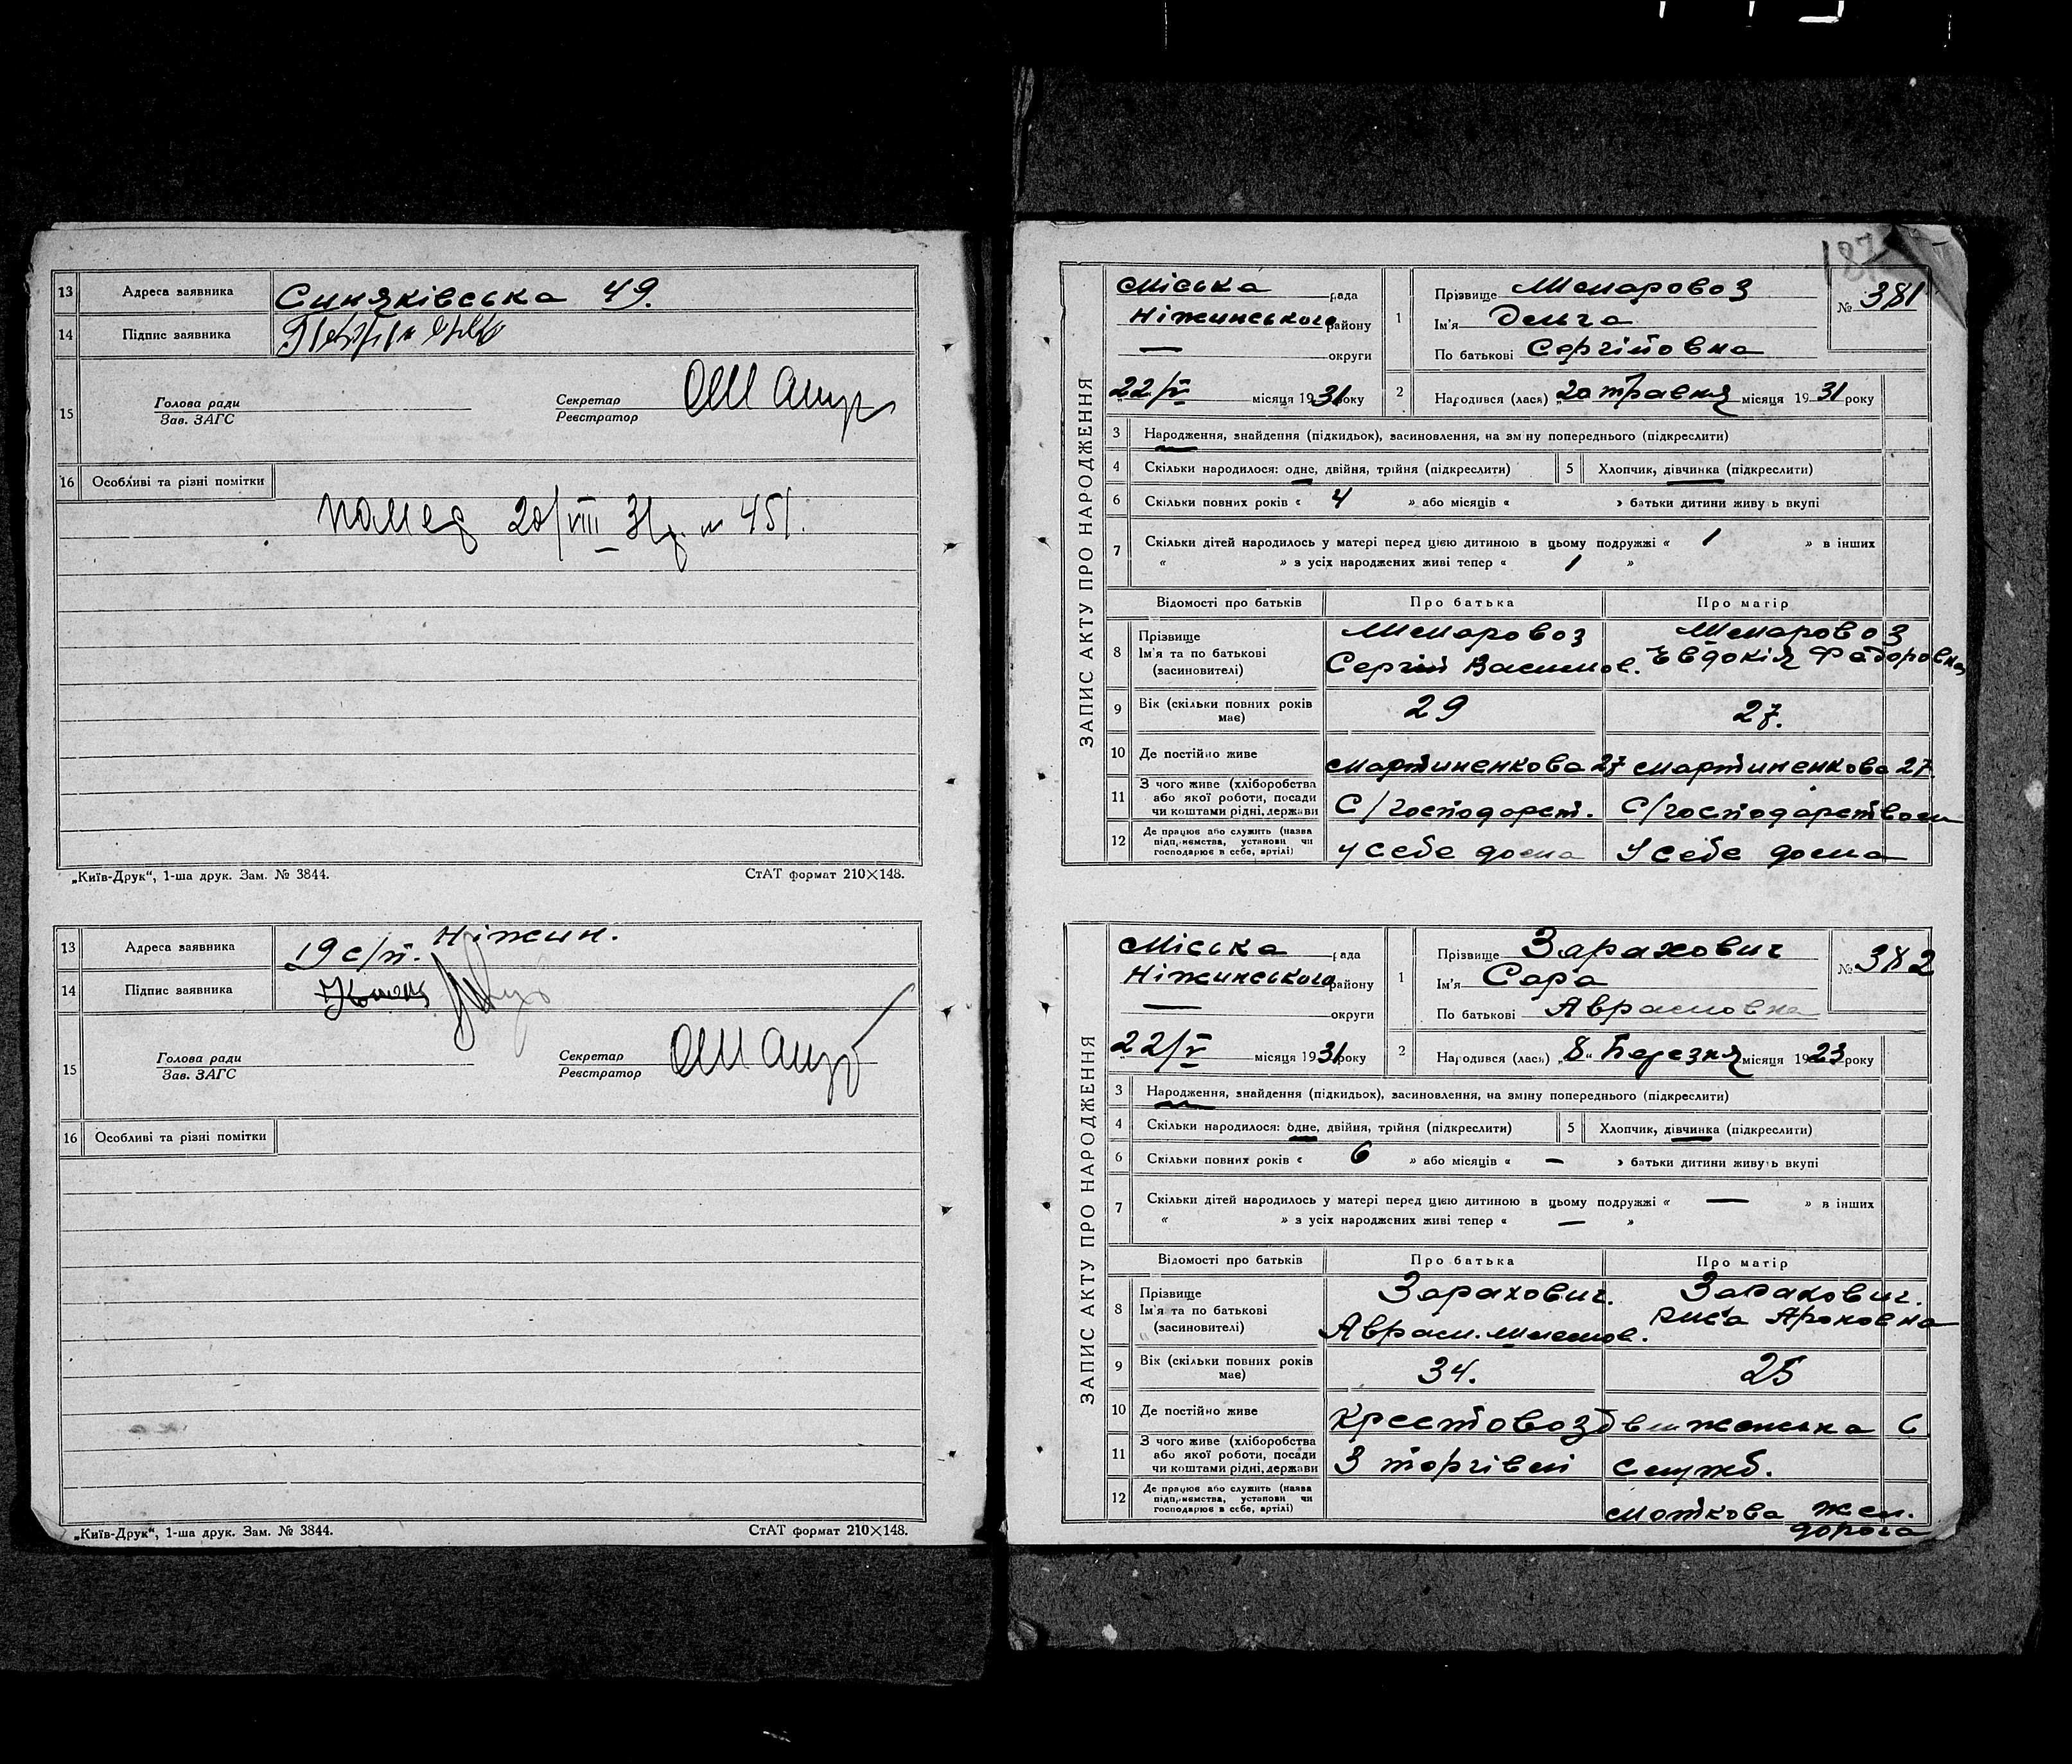 13 Адреса заявника Синяківська 49.
14 Підпис заявника
15 Голова ради Зав. ЗАГС Секретар Реєстратор
16 Особливі та різні помітки
20/VIII 31 р. № 451.
„Київ-Друк“, 1-ша друк. Зам. № 3844. СтАТ формат 210×148.
13 Адреса заявника 19 с/п. Ніжин.
14 Підпис заявника
15 Голова ради Зав. ЗАГС Секретар Реєстратор
16 Особливі та різні помітки
„Київ-Друк“, 1-ша друк. Зам. № 3844. СтАТ формат 210×148.
187
ЗАПИС АКТУ ПРО НАРОДЖЕННЯ
Міська рада
Ніжинського району
— округи
22/V місяця 1931 року
1 Прізвище
Ім'я Ольга
По батькові Сергіївна
№ 381
2 Народився (лася) „20 травня місяця 1931 року
3 Народження, знайдення (підкидьок), засиновлення, на зміну попереднього (підкреслити)
4 Скільки народилося: одне, двійня, трійня (підкреслити) 5 Хлопчик, дівчинка (підкреслити)
6 Скільки повних років « 4 » або місяців « » батьки дитини живуть вкупі
7 Скільки дітей народилось у матері перед цією дитиною в цьому подружжі « 1 » в інших
« » з усіх народжених живі тепер « 1 »
Відомості про батьків Про батька Про матір
8 Прізвище
Ім'я та по батькові Сергій Васильов. Євдокія Федоровна
(засиновителі)
9 Вік (скільки повних років має) 29 27.
10 Де постійно живе Мартиненкова 27 Мартиненкова 27.
11 З чого живе (хліборобства або якої роботи, посади чи коштами рідні, держави С/господарст. С/господарством
12 Де працює або служить (назва підприємства, установи чи господарює в себе, артілі) У себе дома У себе дома
ЗАПИС АКТУ ПРО НАРОДЖЕННЯ
Міська рада
Ніжинського району
— округи
22/V місяця 1931 року
1 Прізвище Зарахович
Ім'я Сара
По батькові Аврамовна
№ 382
2 Народився (лася) „8“ Березня місяця 1923 року
3 Народження, знайдення (підкидьох), засиновлення, на зміну попереднього (підкреслити)
4 Скільки народилося: одне, двійня, трійня (підкреслити) 5 Хлопчик, дівчинка (підкреслити)
6 Скільки повних років « 6 » або місяців « — » батьки дитини живуть вкупі
7 Скільки дітей народилось у матері перед цією дитиною в цьому подружжі « — » в інших
« » з усіх народжених живі тепер « — »
Відомості про батьків Про батька Про матір
8 Прізвище Зарахович. Зарахович.
Ім'я та по батькові Аврам.
(засиновителі)
9 Вік (скільки повних років має) 34. 25
10 Де постійно живе Крестовоздвиженська 6
11 З чого живе (хліборобства або якої роботи, посади чи коштами рідні, держави З торгівлі служб.
12 Де працює або служить (назва підприємства, установи чи господарює в себе, артілі) жел. дорога